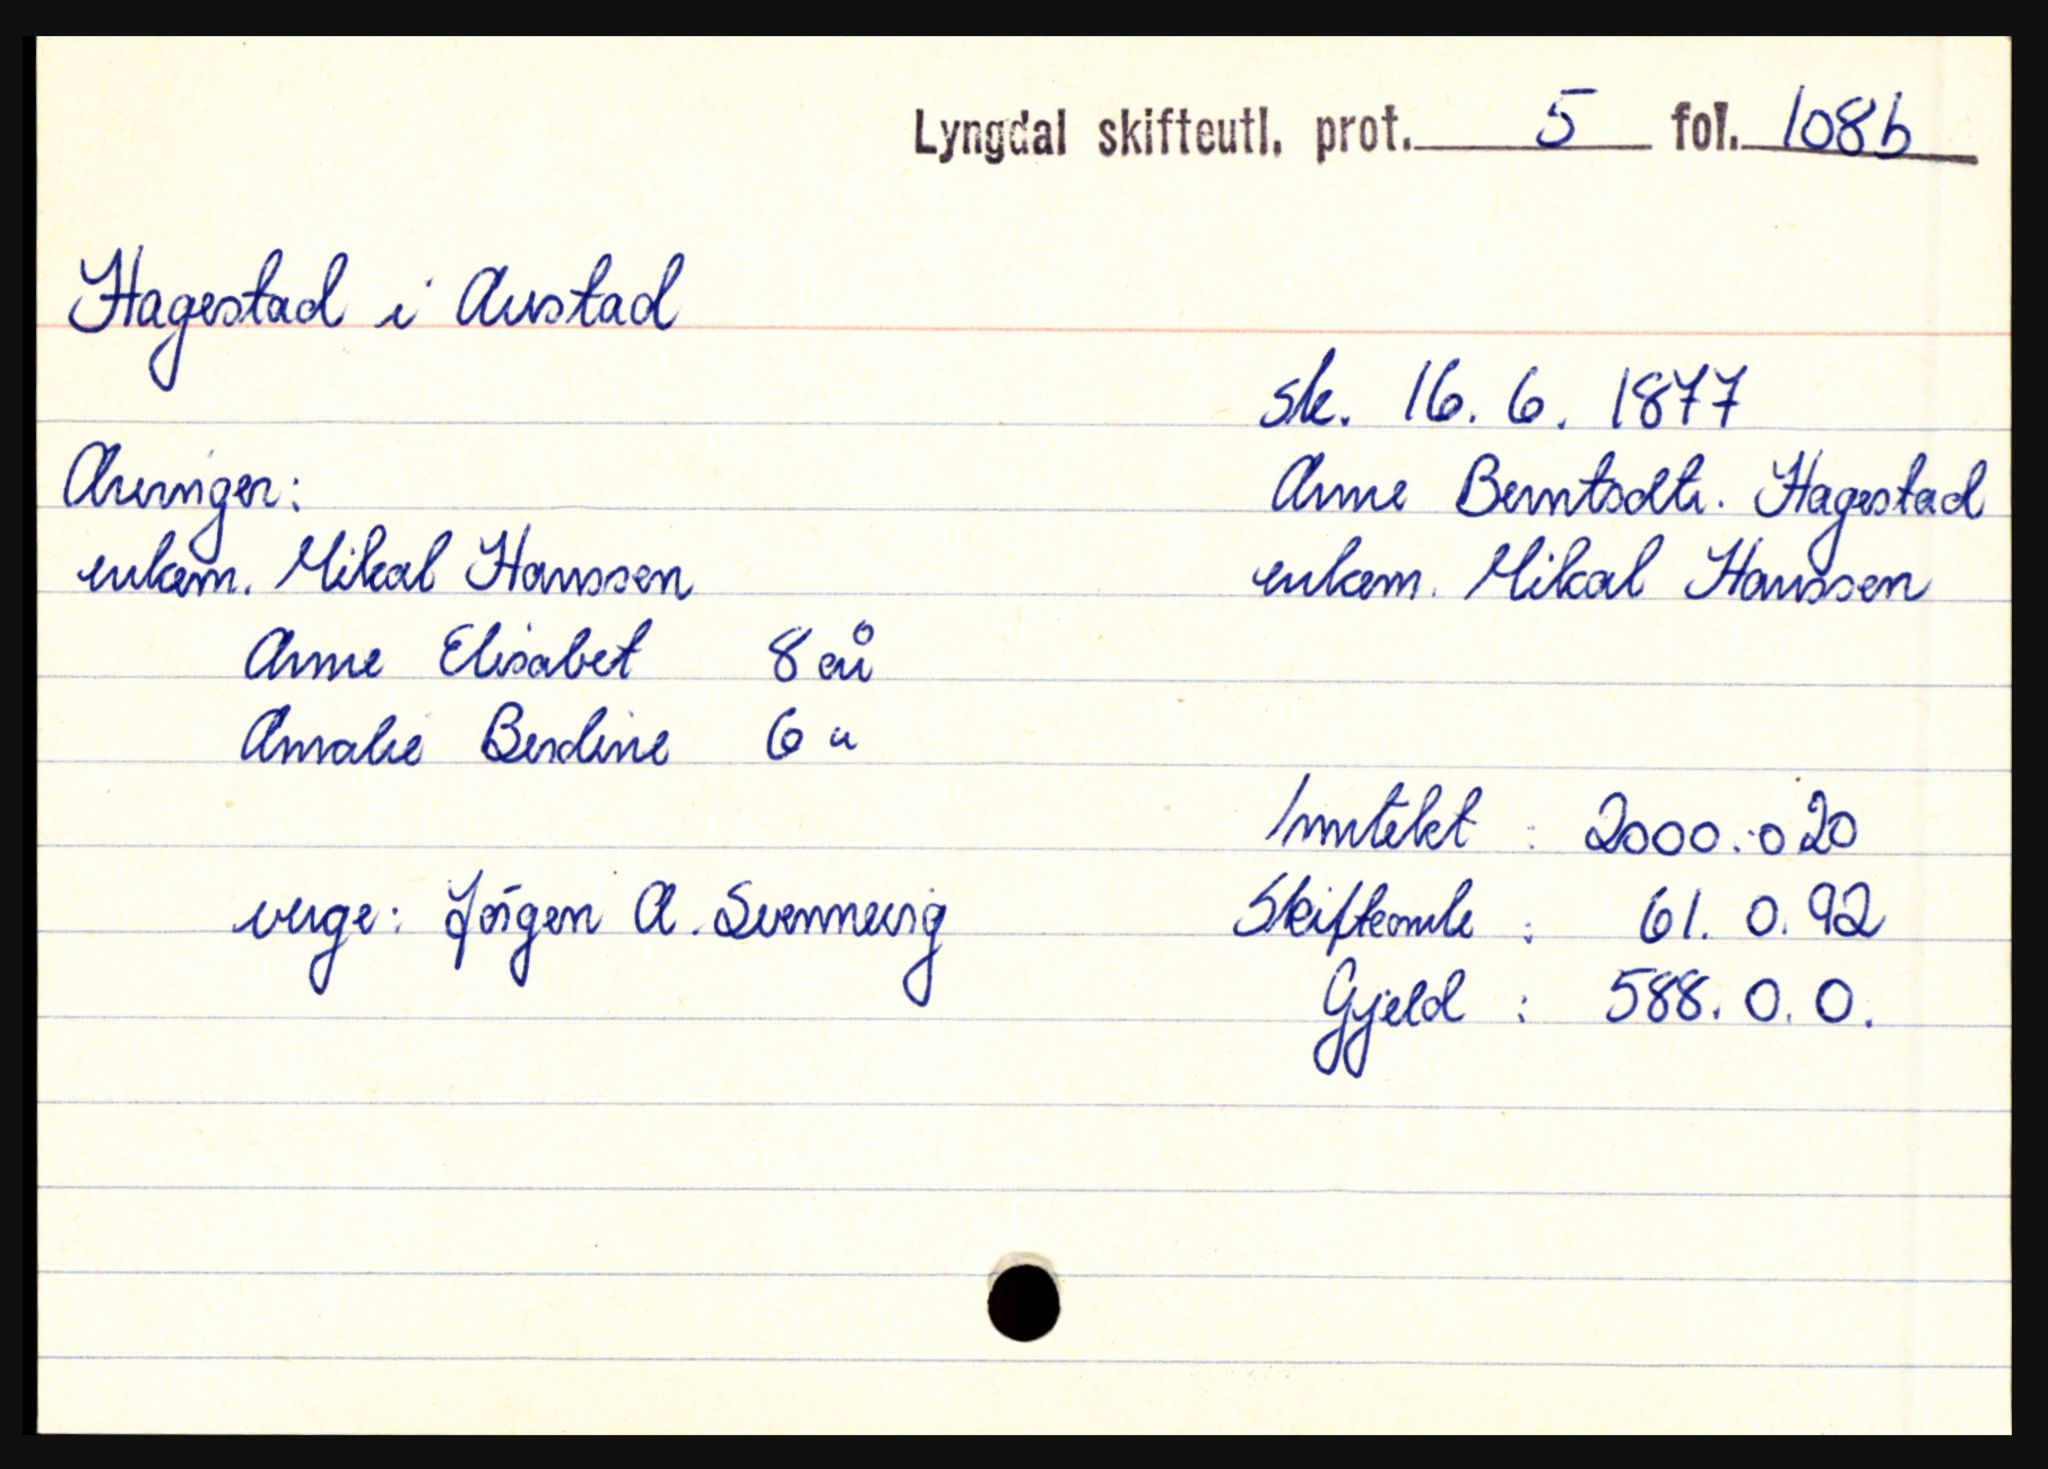 Lyngdal skifteutl. prot. 5 fol. 108b
Hagestad i Austad
sk. 16. 6. 1877
Arvinger:
Anne Berntsdtr. Hagestad
enkem. Mikal Hanssen
enkem. Mikal Hanssen
Anne Elisabet 8 år
Amalie Berdine 6 "
Inntekt : 2000.0 20
verge: Jörgen A. Svennevig
Skifteomk : 61. 0. 92
Gjeld : 588. 0. 0.